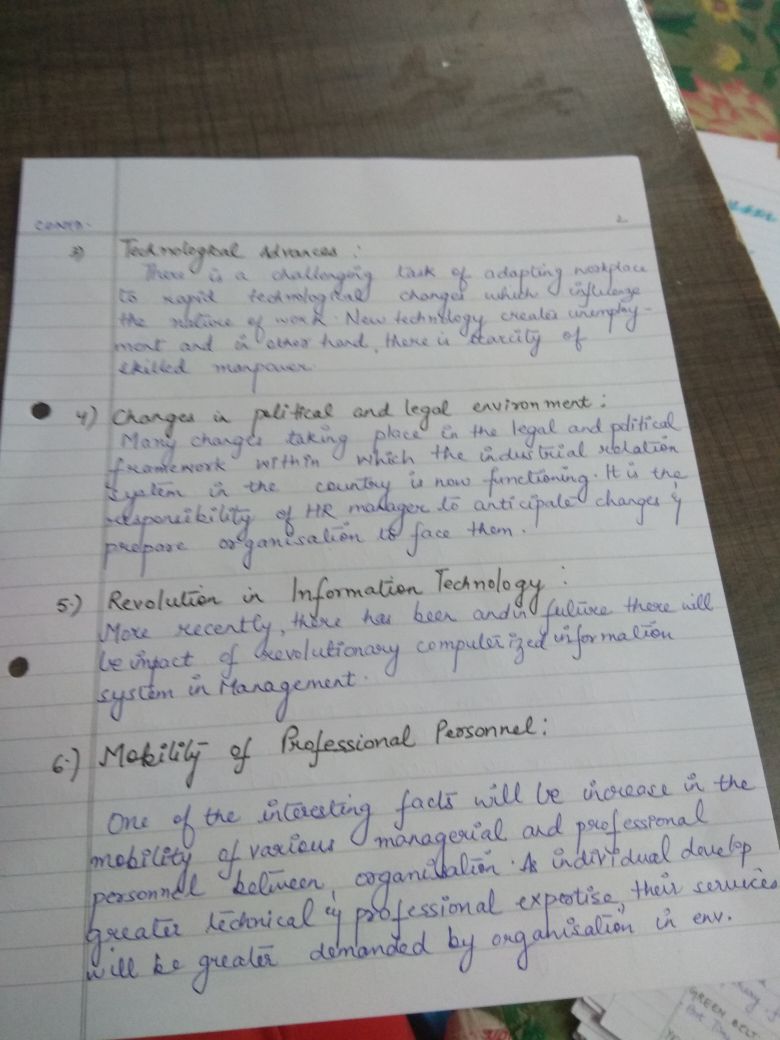 CONTD. 2
3) Technological Advances :
There is a challenging task of adapting workplace
to rapid technological changes which influence
the nature of work. New technology creates unemploy-
ment and in other hand, there is starcity of
skilled manpower.
4) Changes in political and legal environment :
Many changes taking place in the legal and political
framework within which the industrial relation
system in the country is now functioning. It is the
responsibility of HR manager to anticipate changes &
prepare organisation to face them.
5.) Revolution in Information Technology :
More recently, there has been and in future there will
be impact of revolutionary computerized information
system in Management.
6.) Mobility of Professional Personnel :
One of the interesting facts will be increase in the
mobility of various managerial and professional
personnel between organisation. As individual develop
greater technical & professional expertise, their services
will be greater demanded by organisation in env.
GREEN BELT